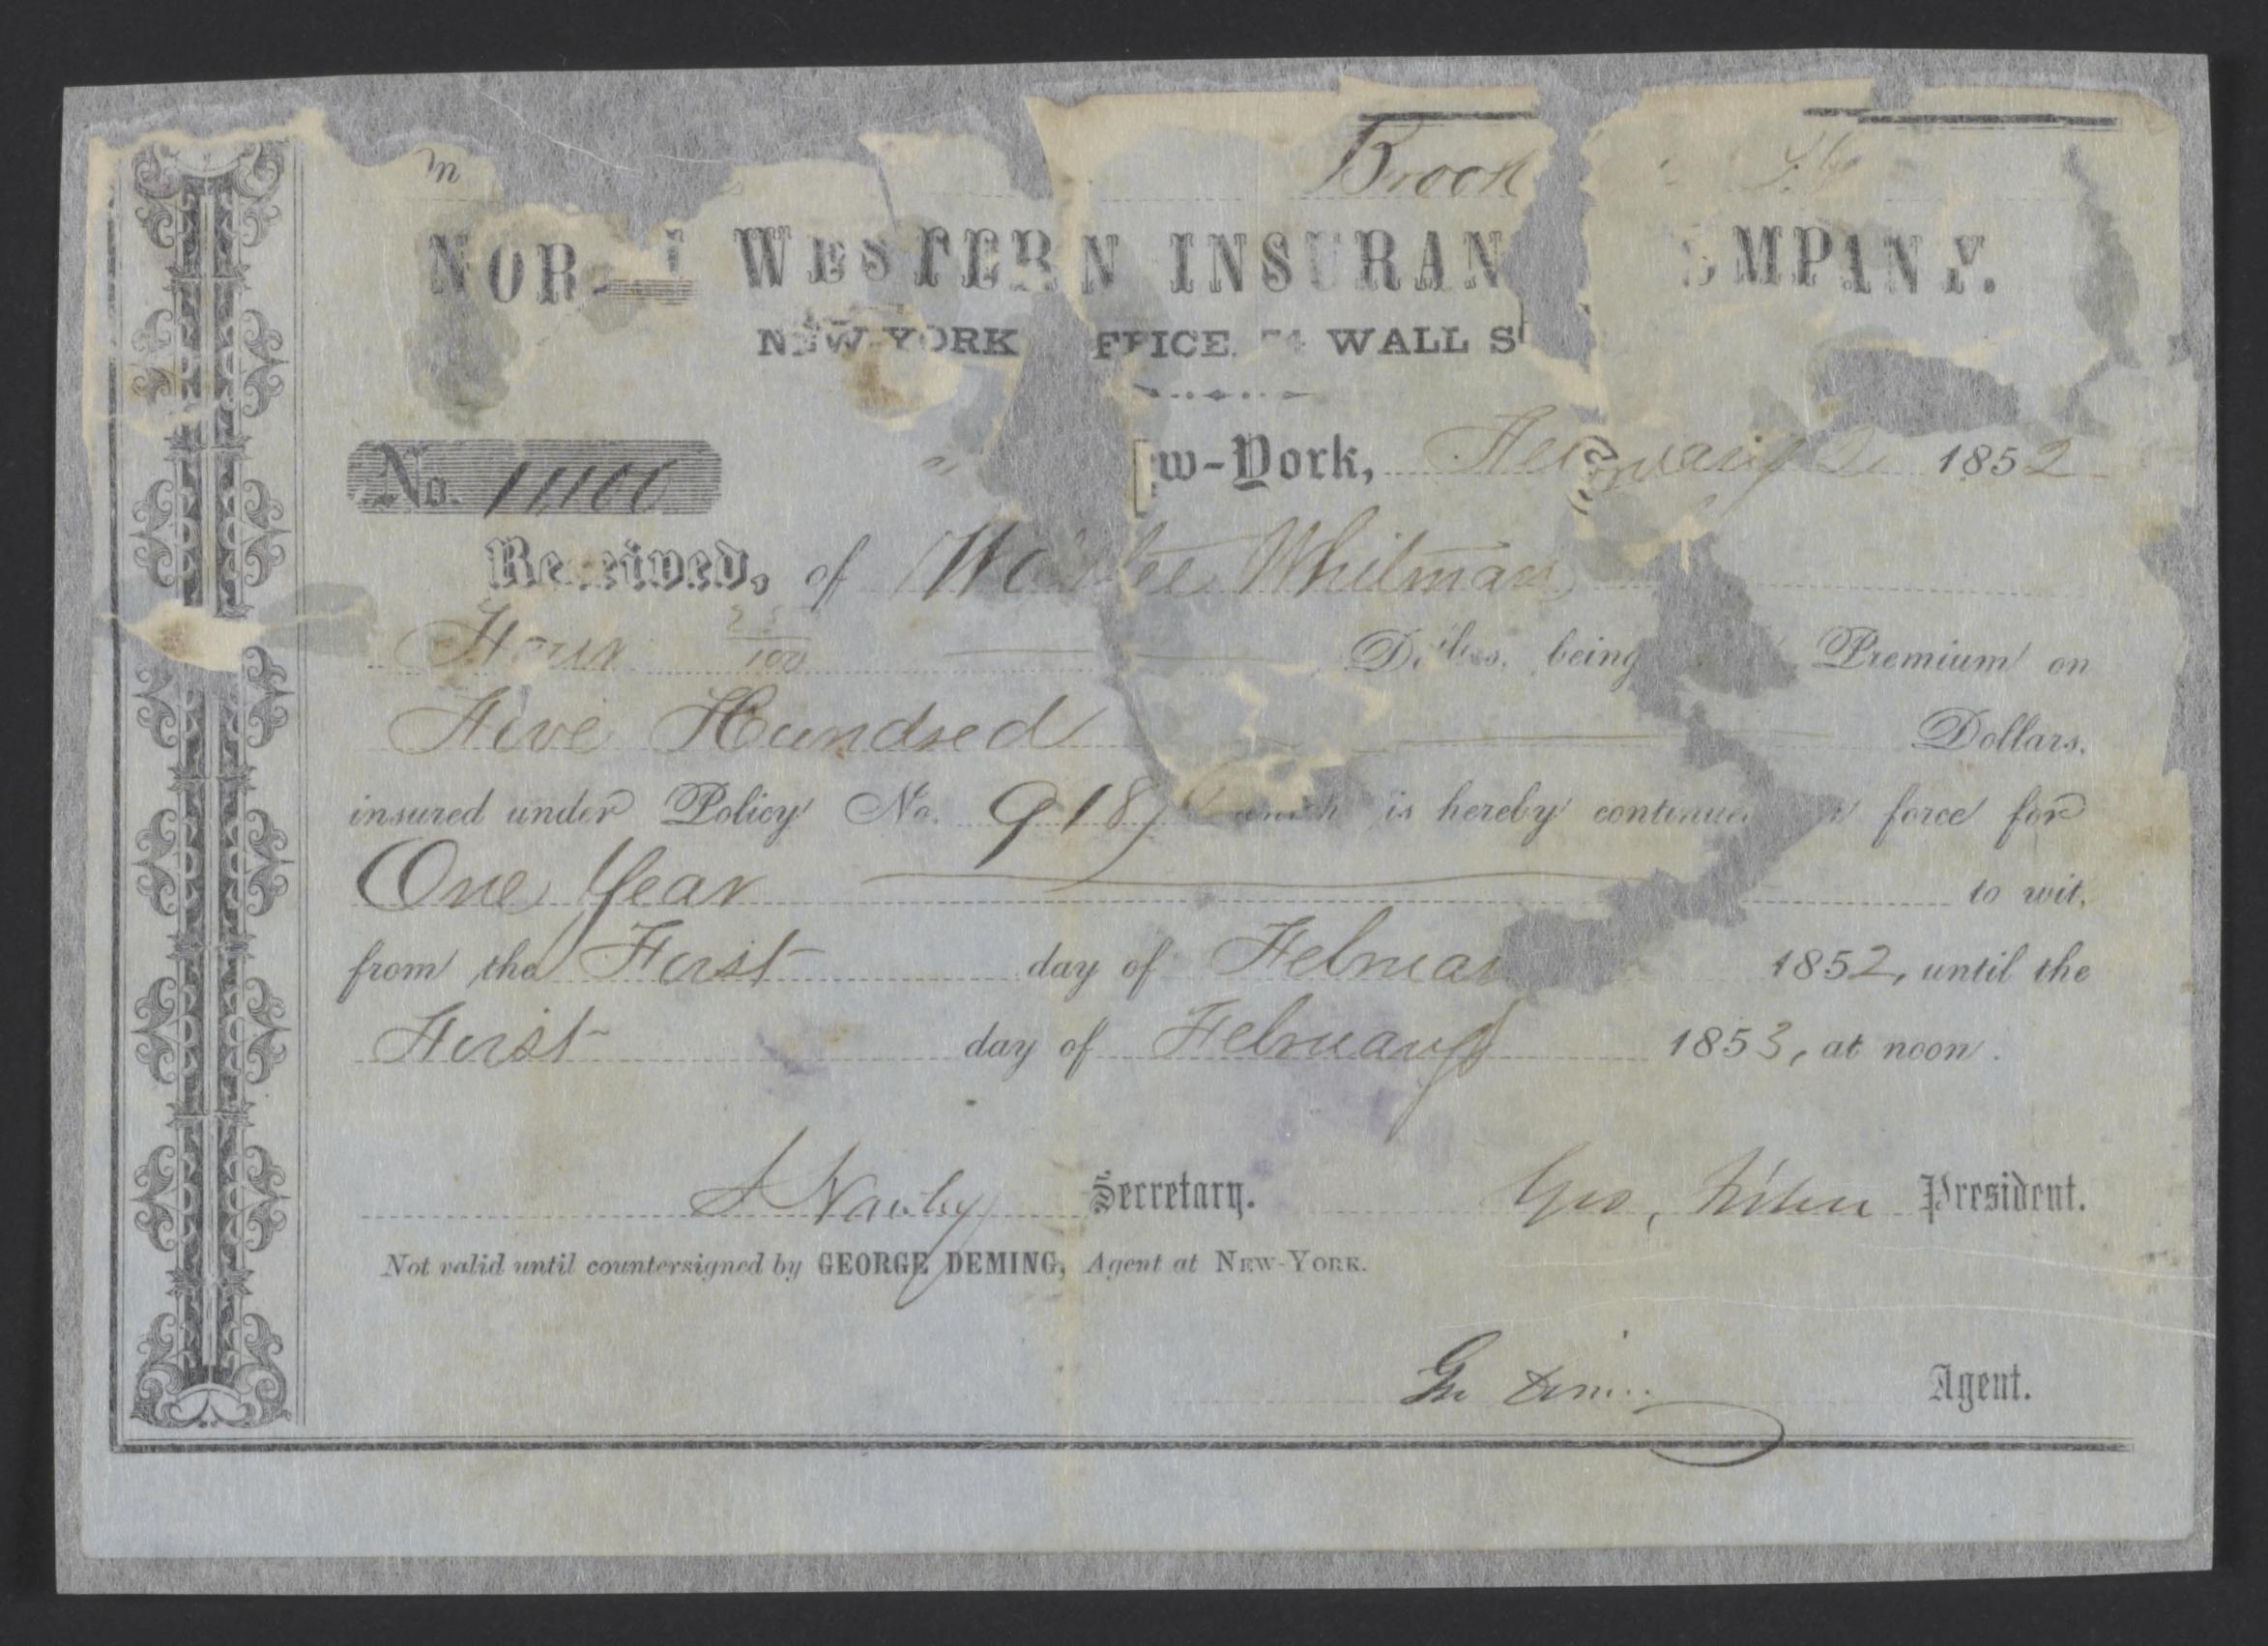 Brook
NOR WESTERN INSURAN MPANY.
NEW-YORK FFICE, WALL S
No. 11106
w-York, February 2, 1852
Received, of Whitman
Four 25/100 Dollars, being Premium on
Five Hundred Dollars,
insured under Policy No. 9187 which is hereby continue force for
One Year to wit,
from the First day of Februar 1852, until the
First day of February 1853, at noon.
Secretary. Geo, President.
Not valid until countersigned by GEORGE DEMING, Agent at NEW-YORK.
Agent.